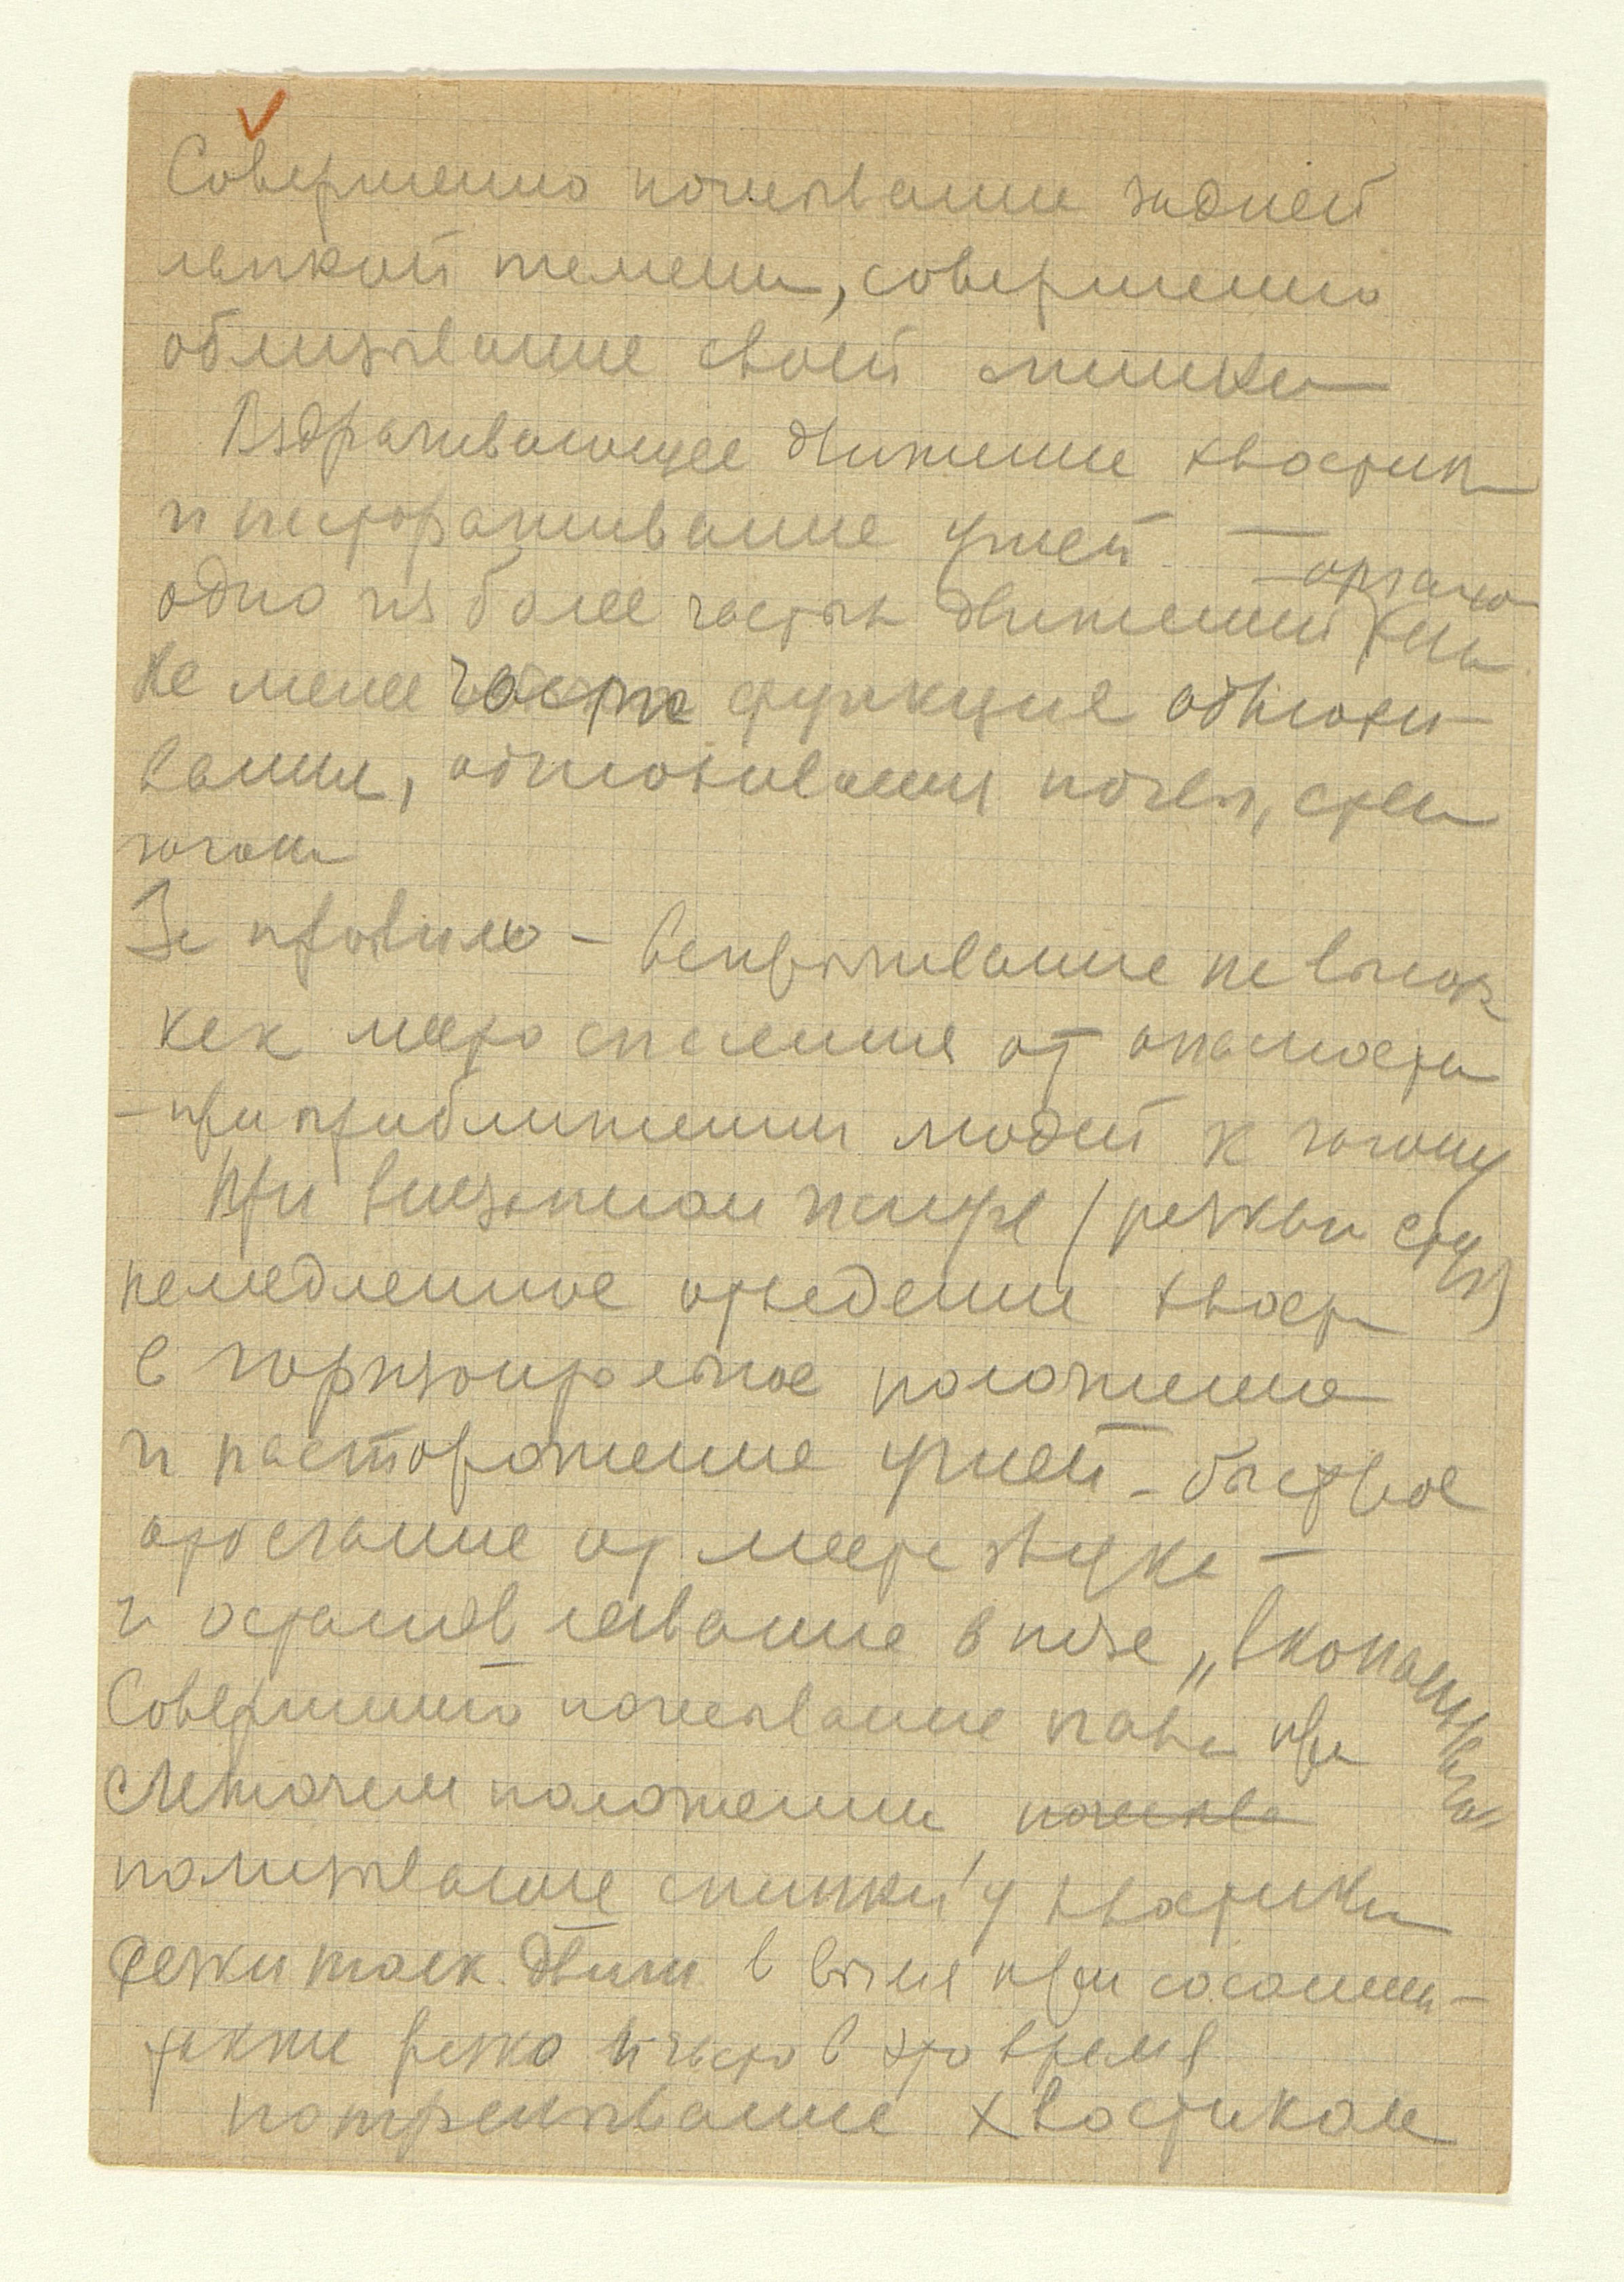 Совершенно почесывание задней
лапкой темени, совершенно
облизывание своей спинки
Вздрагивающее движение хвостика
и настораживание ушей —
одно из более частых движений
органо
Не менее часты функция обнюхи-
вания, обнюхивания почвы, стен
загона
За правило — вспрыгивание на
как мера спасения от опасности
— при приближении людей к загону
При внезапном шуме (резкий стук)
немедленное отведение хвоста
в горизонтальное положение
и насторожение ушей — быстрое
отбегание от места звука —
и останавливание в позе „вкопанного"
Совершенно почесывание паха при
лежачем положении, почесыва
полизывание спинки у хвостика
Резки толк. движ. в вымя при сосании —
также резко и часто в это время
потрясывание хвостиком